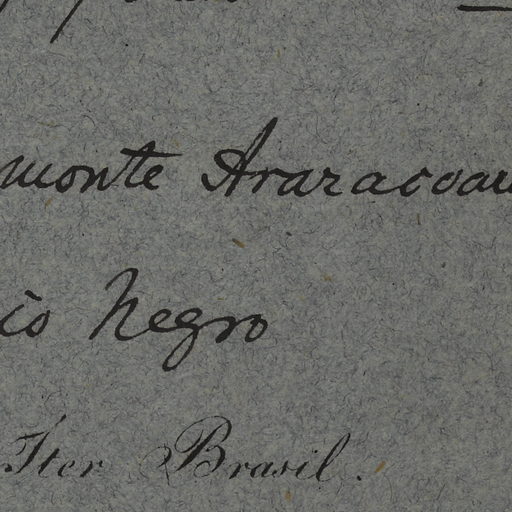 monte Araracoar
io Negro
Iter Brasil.